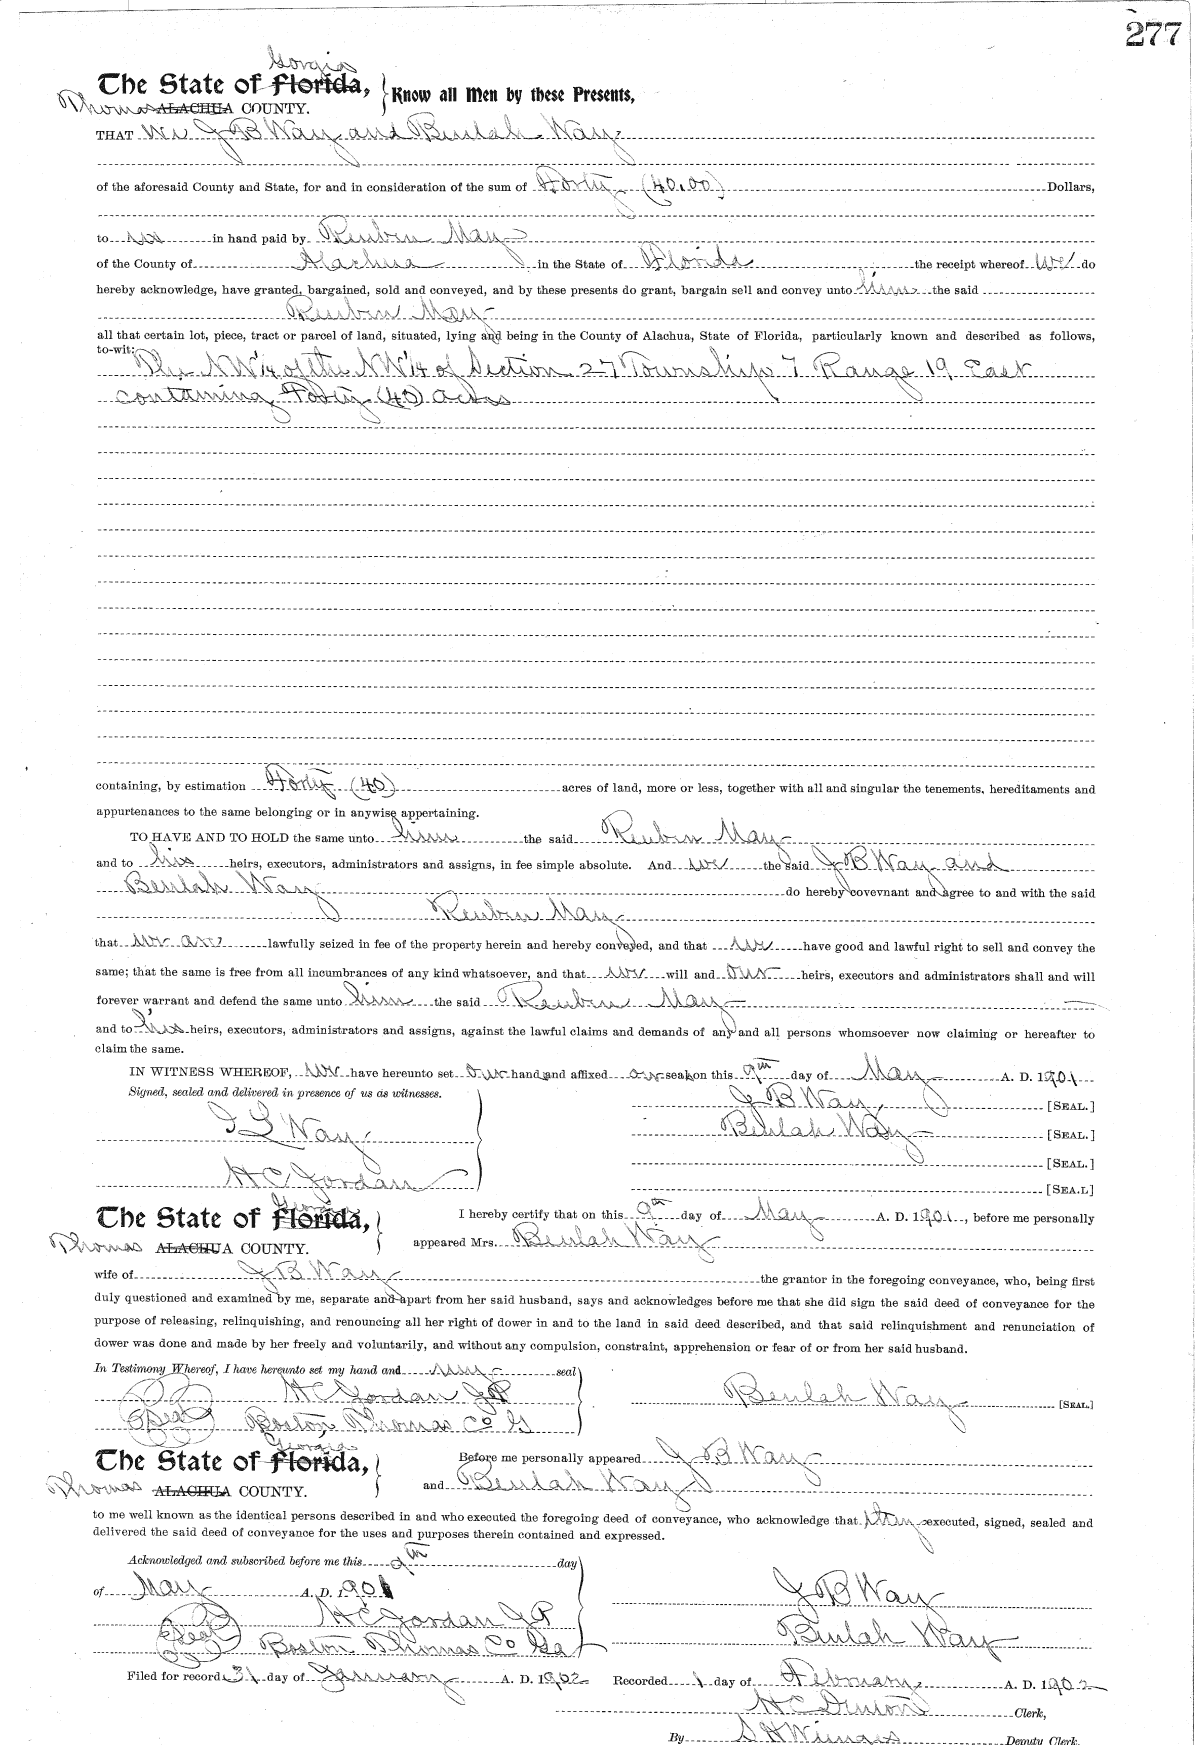 277
Georgia
The State of Florida,
Know all Men by these Presents,
Thomas ALACHUA COUNTY.
THAT We J B Way and Beulah Way
of the aforesaid County and State, for and in consideration of the sum of Forty (40.00) Dollars,
to us in hand paid by Reubin May
of the County of Alachua in the State of Florida the receipt whereof we do
hereby acknowledge, have granted, bargained, sold and conveyed, and by these presents do grant, bargain sell and convey unto him the said
Reubin May
all that certain lot, piece, tract or parcel of land, situated, lying and being in the County of Alachua, State of Florida, particularly known and described as follows,
to-wit:
The NW 1/4 of the NW 1/4 of Section 27 Township 7 Range 19 East
containing Forty (40) acres
containing, by estimation Forty (40) acres of land, more or less, together with all and singular the tenements, hereditaments and
appurtenances to the same belonging or in anywise appertaining.
TO HAVE AND TO HOLD the same unto him the said Reubin May
and to his heirs, executors, administrators and assigns, in fee simple absolute. And we the said J B Way and
Beulah Way do hereby covevnant and agree to and with the said
Reubin May
that we are lawfully seized in fee of the property herein and hereby conveyed, and that we have good and lawful right to sell and convey the
same; that the same is free from all incumbrances of any kind whatsoever, and that we will and our heirs, executors and administrators shall and will
forever warrant and defend the same unto him the said Reubin May
and to his heirs, executors, administrators and assigns, against the lawful claims and demands of any and all persons whomsoever now claiming or hereafter to
claim the same.
IN WITNESS WHEREOF, we have hereunto set our hand and affixed our seal on this 9th day of May A. D. 1901
Signed, sealed and delivered in presence of us as witnesses.
J B Way [SEAL.]
Beulah Way [SEAL.]
Way
[SEAL.]
H C Jordan
[SEA.L]
Georgia
The State of Florida,
Thomas ALACHUA COUNTY.
I hereby certify that on this 9th day of May A. D. 1901, before me personally
appeared Mrs. Beulah Way
wife of J B Way the grantor in the foregoing conveyance, who, being first
duly questioned and examined by me, separate and apart from her said husband, says and acknowledges before me that she did sign the said deed of conveyance for the
purpose of releasing, relinquishing, and renouncing all her right of dower in and to the land in said deed described, and that said relinquishment and renunciation of
dower was done and made by her freely and voluntarily, and without any compulsion, constraint, apprehension or fear of or from her said husband.
In Testimony Whereof, I have hereunto set my hand and my seal
H C Jordan J P
Beulah Way [SEAL.]
Seal Boston, Thomas Co G
Georgia
The State of Florida,
Thomas ALACHUA COUNTY.
Before me personally appeared J B Way
and Beulah Way
to me well known as the identical persons described in and who executed the foregoing deed of conveyance, who acknowledge that they executed, signed, sealed and
delivered the said deed of conveyance for the uses and purposes therein contained and expressed.
Acknowledged and subscribed before me this 9th day
of May A. D. 1901
J B Way
H C Jordan J P
Beulah Way
Seal Boston Thomas Co Ga
Filed for record 31 day of January A. D. 1902 Recorded 1 day of February A. D. 1902
H C Denton Clerk,
By S H Wienges Deputy Clerk.